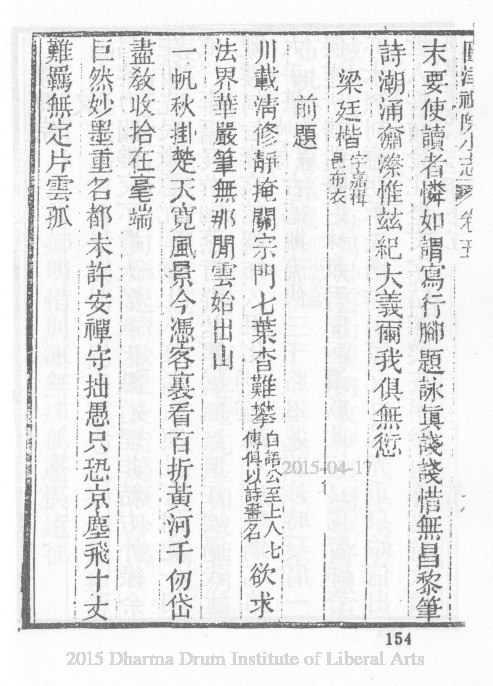 圓津禪院小志 卷五
末要使讀者憐如謂寫行腳題詠眞諓諓惜無昌黎筆
詩潮涌齋漈惟茲紀大義爾我俱無愆
梁廷楷字嘉楫邑布衣
前題
川載淸修靜掩關宗門七葉杳難攀自語公至上人七傳俱以詩畫名欲求
法界華嚴筆無那閒雲始出山
一帆秋掛楚天寬風景今憑客裏看百折黃河千仞岱
盡敎收拾在毫端
巨然妙墨重名都未許安禪守拙愚只恐京塵飛十丈
難羈無定片雲孤
2015-04-17
154
2015 Dharma Drum Institute of Liberal Arts